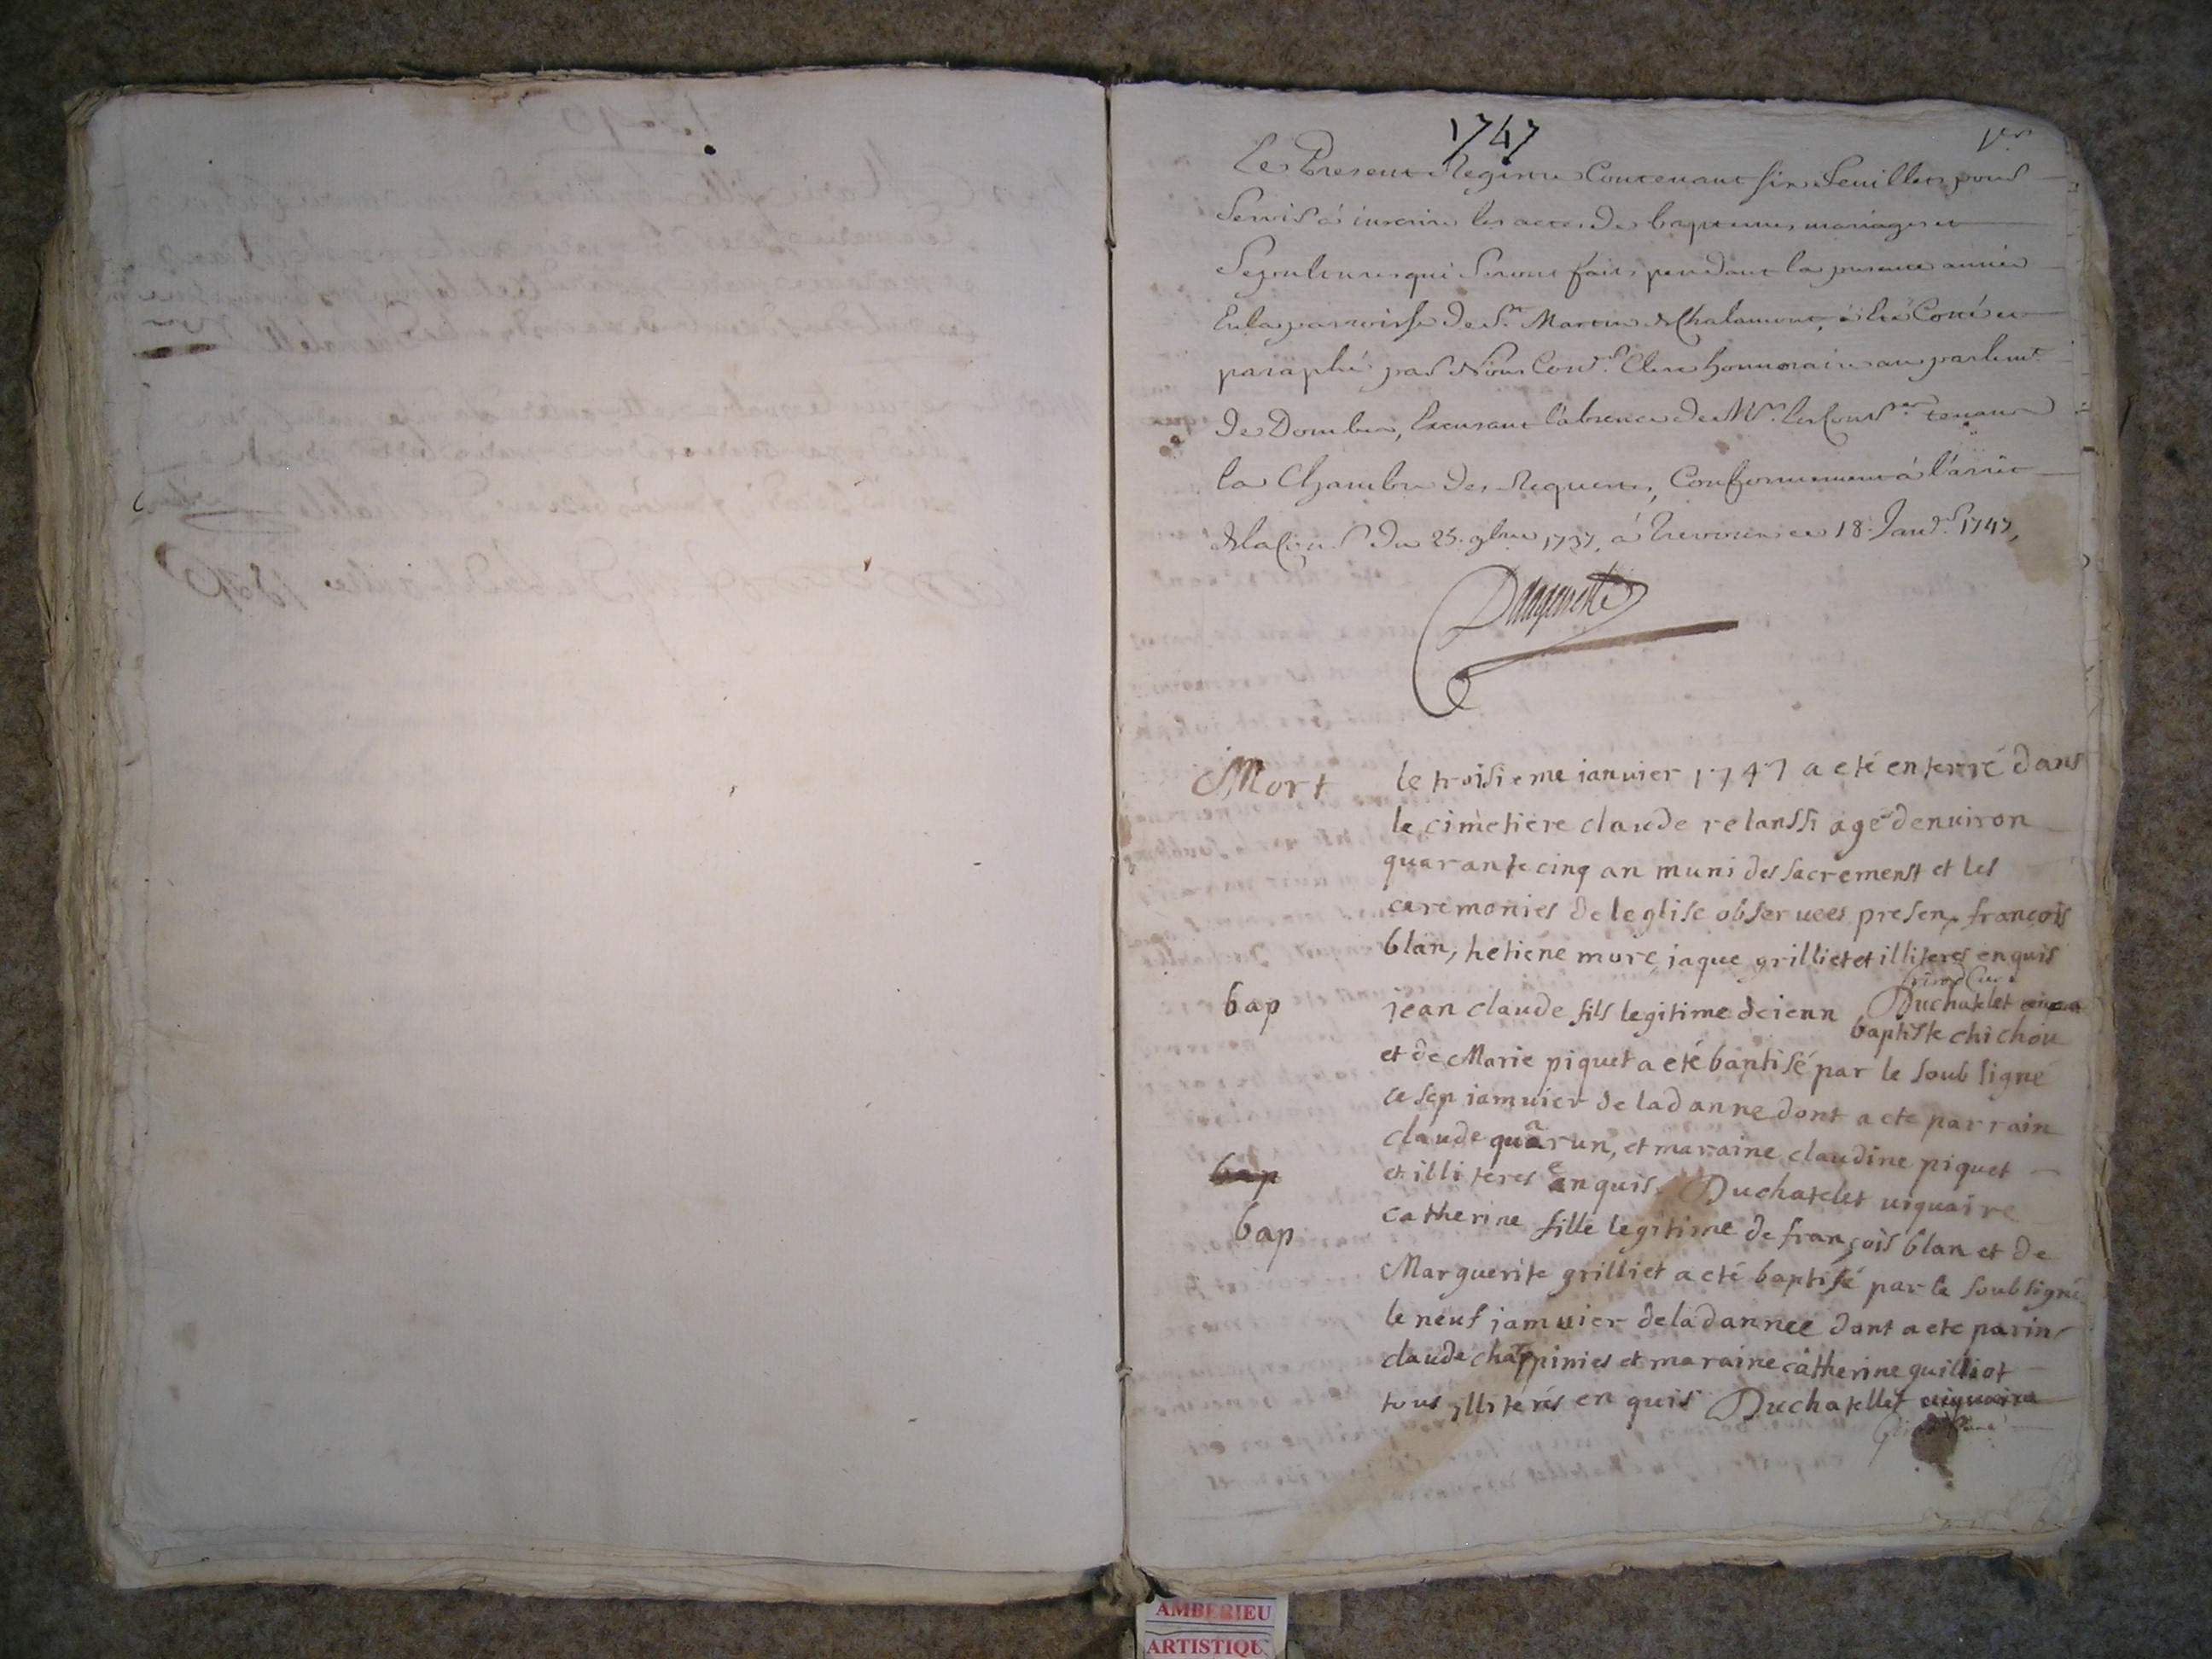 1747
1er
Le Present Registre Contenant six feuillets pour
Servir à inscrire les actes de baptemes mariages et
Sepultures qui seront faits pendant la presente année
En la parroisse de St. Martin de Chalamont, a été Cotté et
paraphé par Nous Cons.r Clerc honnoraire au parlem.t
de Dombes, Excusant l'absence de Mrs. les Cons.rs tenant
la Chambre des Requetes, Conformement à l'arrêt
de la Cour du 25. 9bre 1737, à Trevoux ce 18. Janv.r 1747,
Mort
le troisieme ianuier 1747 a eté enterré dans
le cimetiere claude relanssi agé denuiron
quarante cinq an muni des sacremenst et les
ceremonies de leglise obseruees presen françois
blan, hetiene more iaque grilliet et illiteres enquis
Duchatelet
bap
jean claude fils legitime de iean
baptiste chichou
et de Marie piquet a eté baptisé par le soub signé
ce sep ianuier de lad anne dont acte parrain
claude quarun, et maraine claudine piquet
bap
et illiteres enquis. Duchatelet uiquaire
bap
catherine fille legitime de françois blan et de
Marguerite grilliet a eté baptisé par le soub signé
le neuf januier de lad annee dont acte parin
claude chappinies et maraine catherine guilliot
tous illiterés en quis Duchatellet uiquaire
AMBERIEU
ARTISTIQU